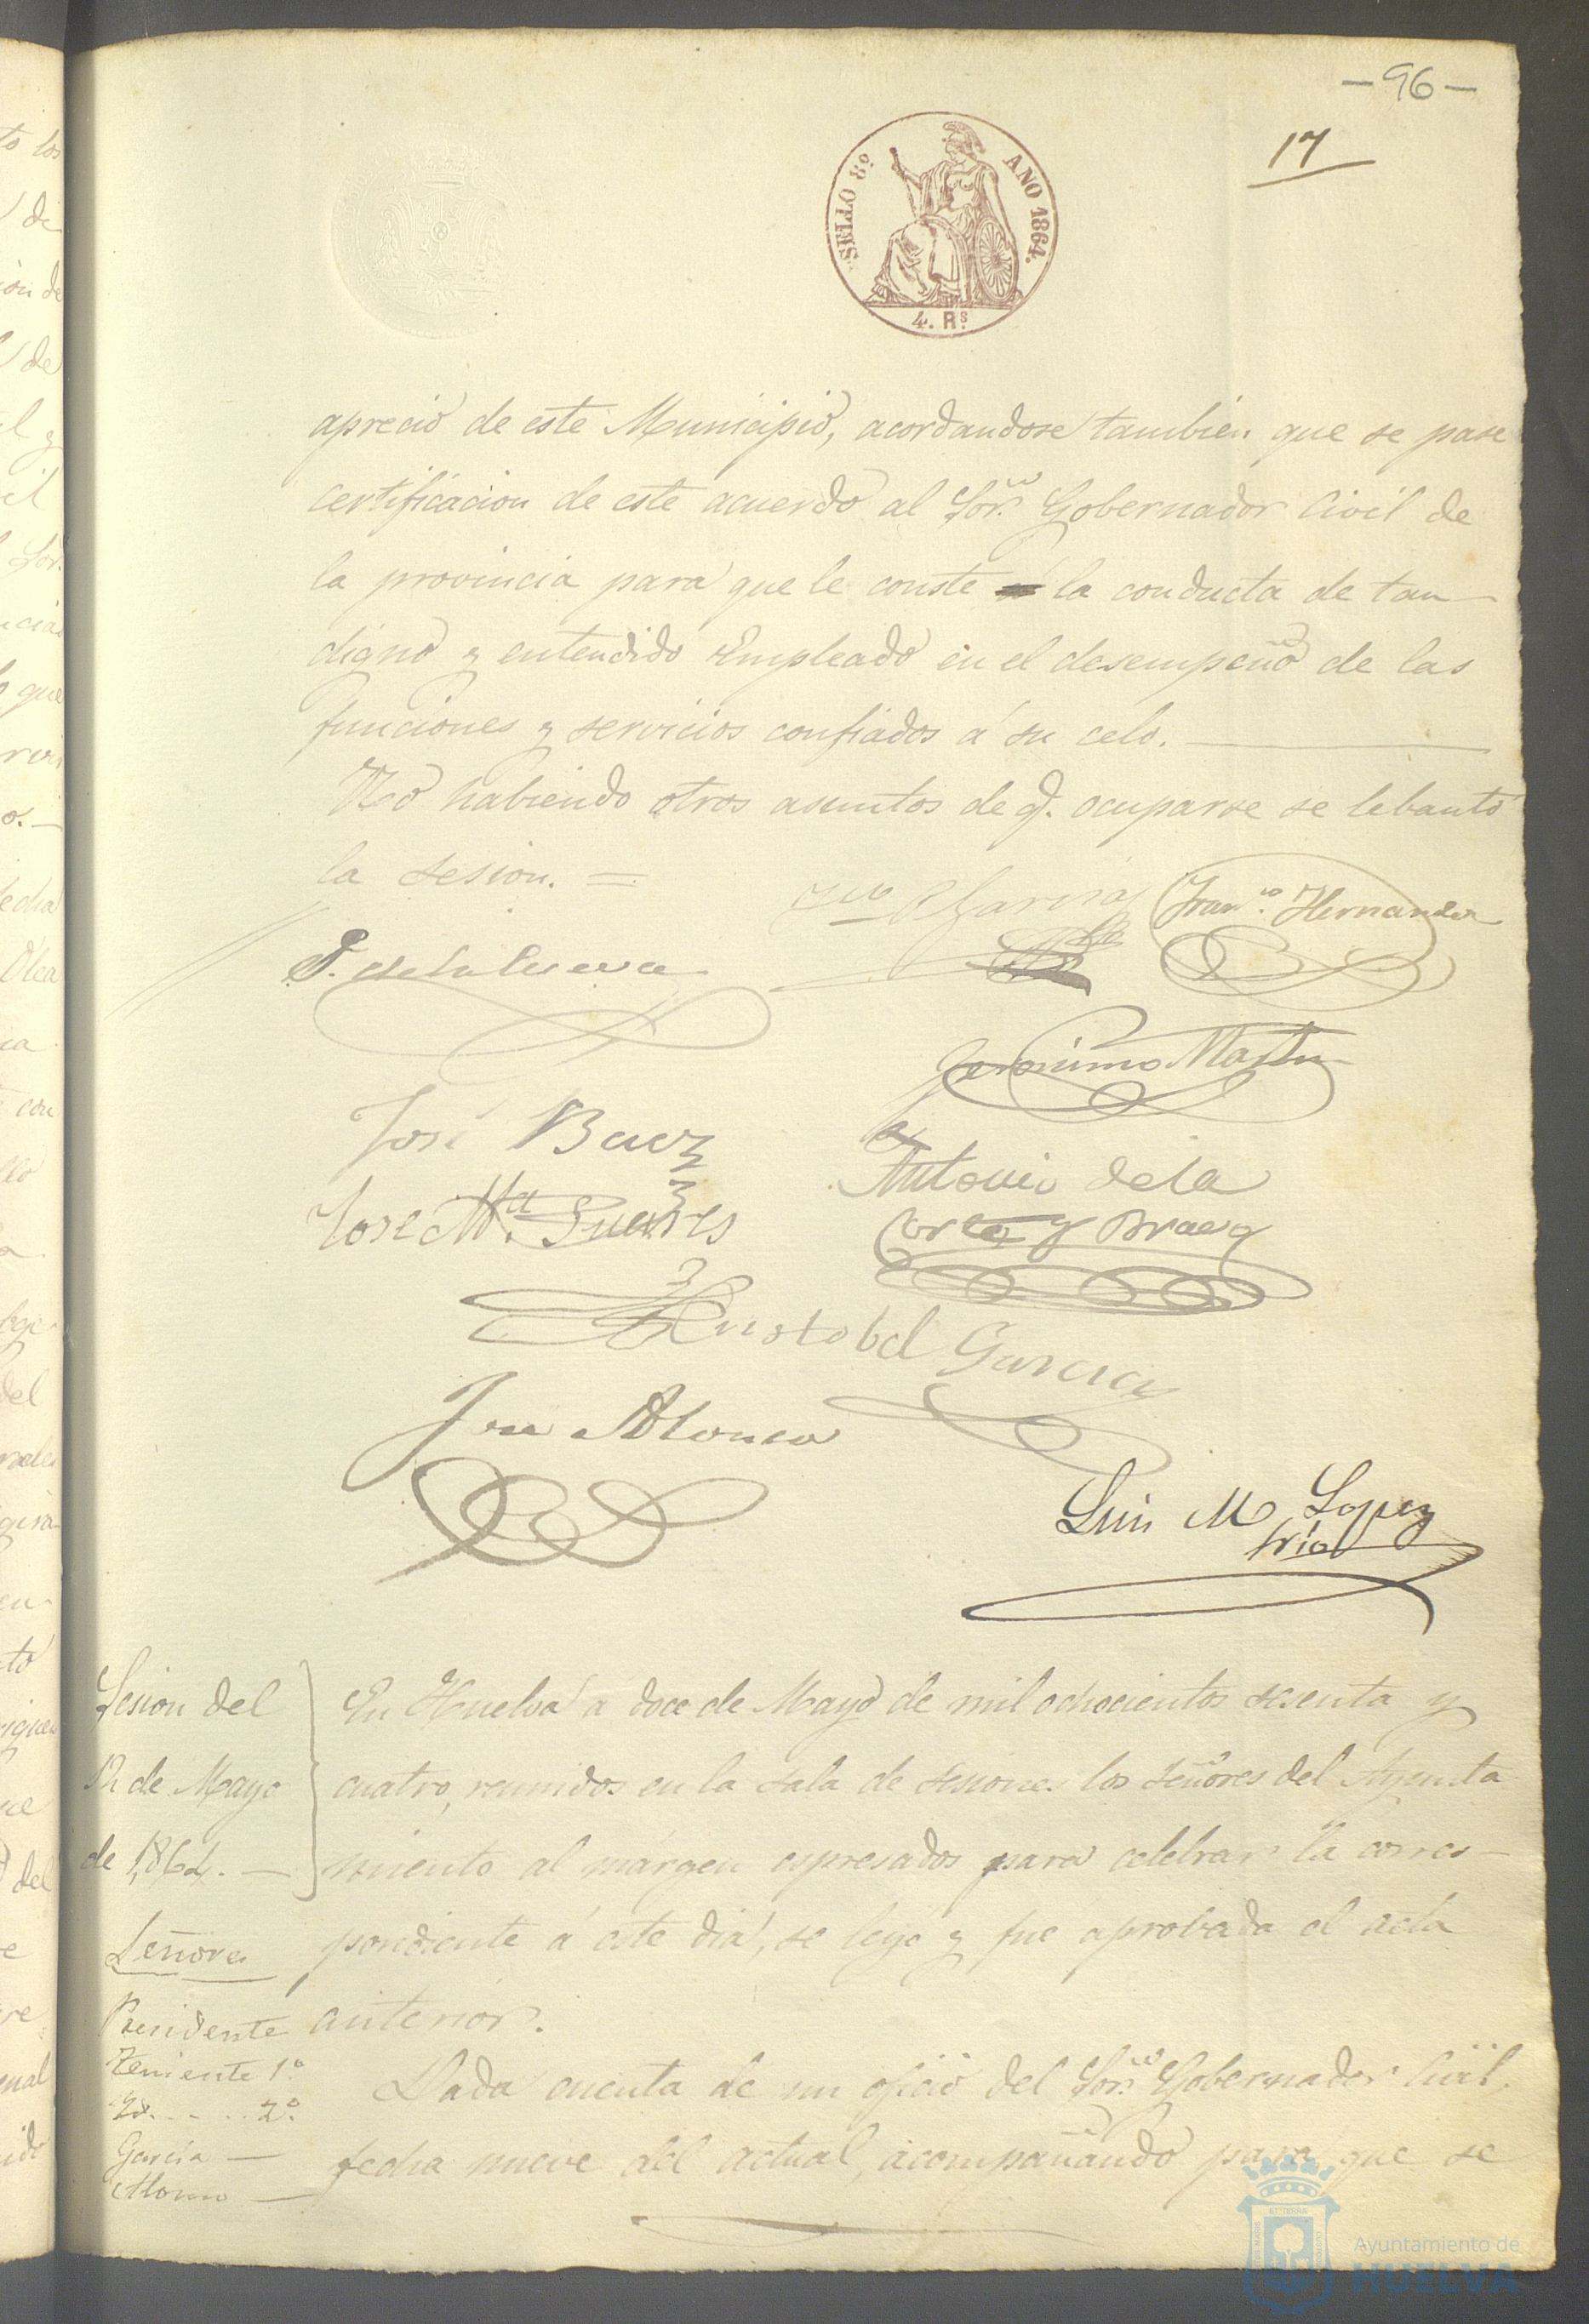 —96—
17
SELLO 8º AÑO 1864.
4. Rs
aprecio de este Municipio, acordandose tambien que se pase
certificacion de este acuerdo al Sor. Gobernador Civil de
la provincia para que le conste la conducta de tan
digno y entendido Empleado en el desempeño de las
funciones y servicios confiados á su celo.
No habiendo otros asuntos de q. ocuparse se lebantó
la sesion. =
Garcia
Franco. Hernandez
P. de la Cueva
Geronimo Martin
José Baez
Antonio de la
José Ma.
Corte y
Cristobal Garcia
José Alonso
Luis M Lopez
Srio
Sesion del
12 de Mayo
de 1864. —
En Huelva á doce de Mayo de mil ochocientos sesenta y
cuatro, reunidos en la sala de sesiones los señores del Ayunta
miento al márgen espresados para celebrar la corres-
pondiente á este dia, se leyó y fue aprobada el acta
anterior.
Señores
Presidente
Teniente 1º
Id. . . . . 2º
Garcia —
Alonso —
Dada cuenta de un oficio del Sor. Gobernador Civil,
fecha nueve del actual, acompañando para que se
Ayuntamiento de
HUELVA